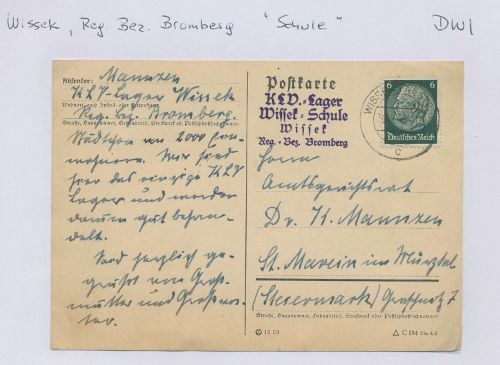 Wissek, Reg. Bez. Bromberg "Schule" DW1
Absender: Mannzen
KLV-Lager Wissek
Wohnort, auch Zustell- oder Leitpostamt
Reg. bez. Bromberg.
Straße, Hausnummer, Gebäudeteil, Stockwerk od. Postschließfachnummer
Städtchen von 2000 Ein-
wohnern. Wir sind
hier das einzige KLV
Lager und werden
darum gut behan-
delt.
Seid herzlich ge-
grüßt von Groß-
mutter und Großva-
ter.
Postkarte
KLV.-Lager
Wissek-Schule
Wissek
Reg.-Bez. Bromberg
6 6
Deutsches Reich
WISSEK
c
Herrn
Amtsgerichtsrat
Dr. K. Mannzen
St. Marein im Mürztal
(Steiermark) 7
Straße, Hausnummer, Gebäudeteil, Stockwerk oder Postschließfachnummer
C 154 Din A 6